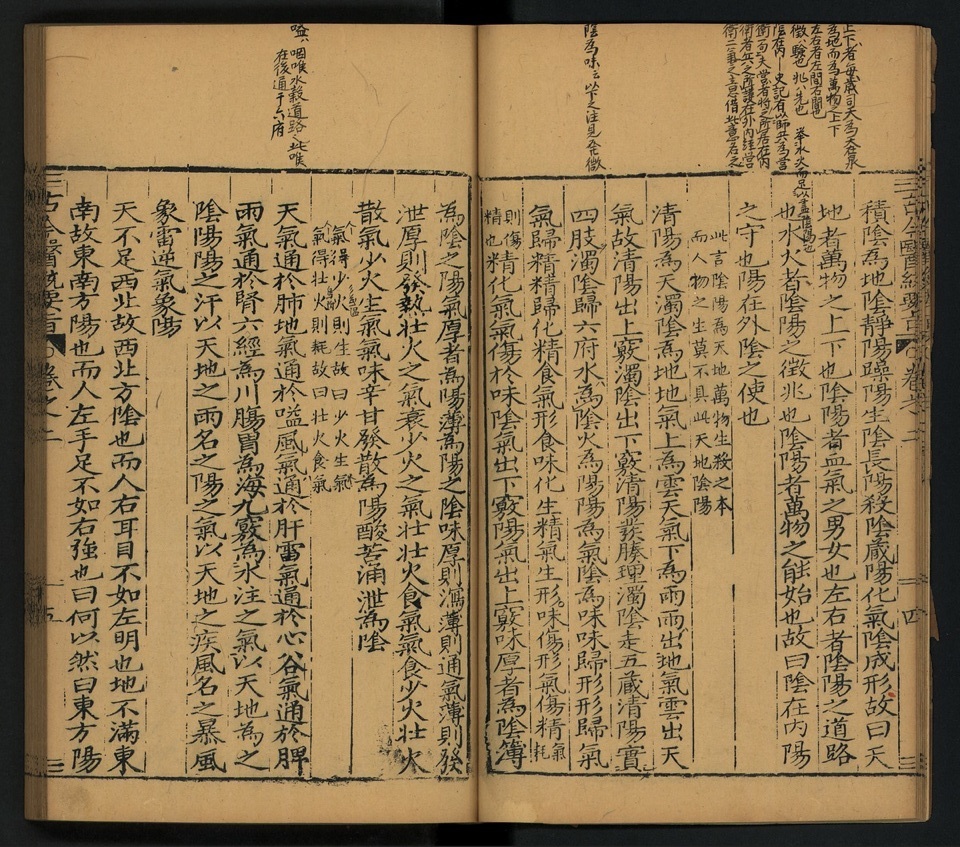 上下者每歲司天為天在泉
為地而為萬物之上下
左右者左間右間也
徵驗也兆先也
舉水火而足以盡陰陽也
陰在內
衛二事之主意借此意名之
陰為味云以下之注見發微
嗌咽喉水穀道路此喉
在後通于六府
積陰為地陰靜陽躁陽生陰長陽殺陰藏陽化氣陰成形故曰天
地者萬物之上下也陰陽者血氣之男女也左右者陰陽之道路
也水火者陰陽之徵兆也陰陽者萬物之能始也故曰陰在内陽
之守也陽在外陰之使也
此言陰陽為天地萬物生殺之本
而人物之生莫不具此天地陰陽
清陽為天濁陰為地地氣上為雲天氣下為雨雨出地氣雲出天
氣故清陽出上竅濁陰出下竅清陽發腠理濁陰走五藏清陽實
四肢濁陰歸六府水為陰火為陽陽為氣陰為味味歸形形歸氣
氣歸精精歸化精食氣形食味化生精氣生形味傷形氣傷精氣耗
則傷精也精化氣氣傷於味陰氣出下竅陽氣出上竅味厚者為陰簿
為陰之陽氣厚者為陽薄為陽之陰味厚則瀉薄則通氣薄則發
泄厚則發熱壯火之氣衰少火之氣壯壯火食氣氣食少火壯火
散氣少火生氣氣味辛甘發散為陽酸苦涌泄為陰
氣得少火則生故曰少火生氣
氣得壮火則耗故曰壮火食氣
天氣通於肺地氣通於嗌風氣通於肝雷氣通於心谷氣通於脾
雨氣通於腎六經為川腸胃為海九竅為水注之氣以天地為之
陰陽陽之汗以天地之雨名之陽之氣以天地之疾風名之暴風
象雷逆氣象陽
天不足西北故西北方陰也而人右耳目不如左明也地不滿東
南故東南方陽也而人左手足不如右強也曰何以然曰東方陽
古今醫統要旨 卷之二 五
卷之二 四